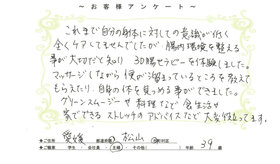 ～お客様アンケート～
これまで自分の身体に対しての意識が低く
全くケアしてませんでしたが 腸内環境を整える
事が大切だと知り 30腸セラピーを体験しました。
マッサージしながら 便が溜まっているところを教えて
もらえたり、自身の体を見つめる事ができました。
グリーンスムージーや料理など 食生活や
家でできるストレッチのアドバイスなど 大変役立ってます。
愛媛
松山
主婦
年齢 39 歳